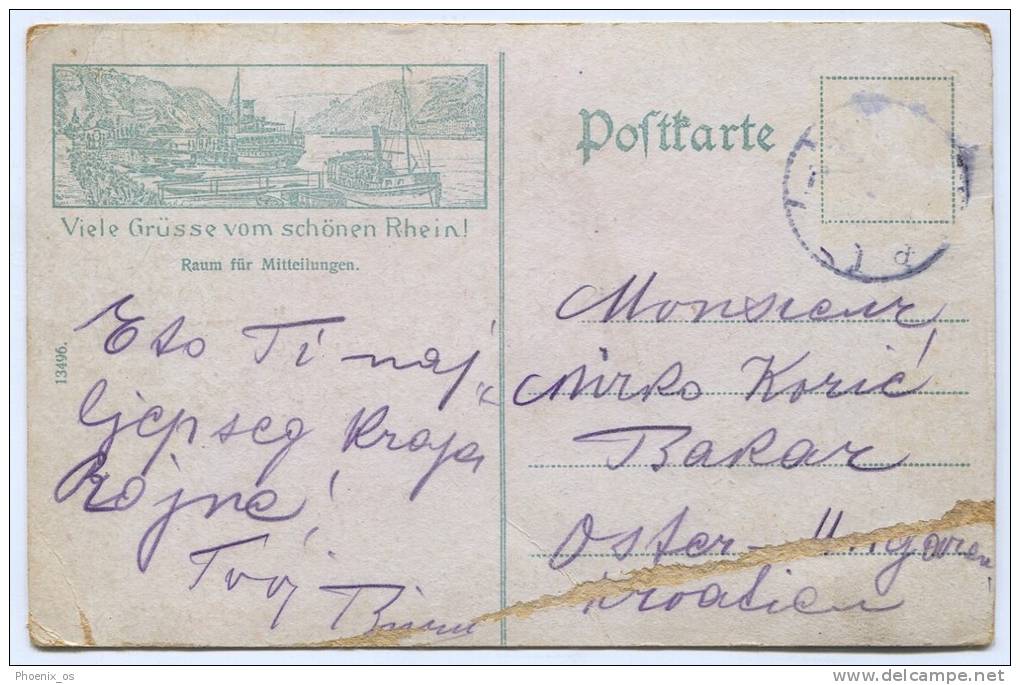 Viele Grüsse vom schönen Rhein!
Raum für Mitteilungen.
13496.
Eto Ti naj„
ljepšeg kraja
Rajne!
Tvoj
Postkarte
Monsieur,
Mirko Korić
Bakar
Oster-
Kroatien
Phoenix_os
www.delcampe.net